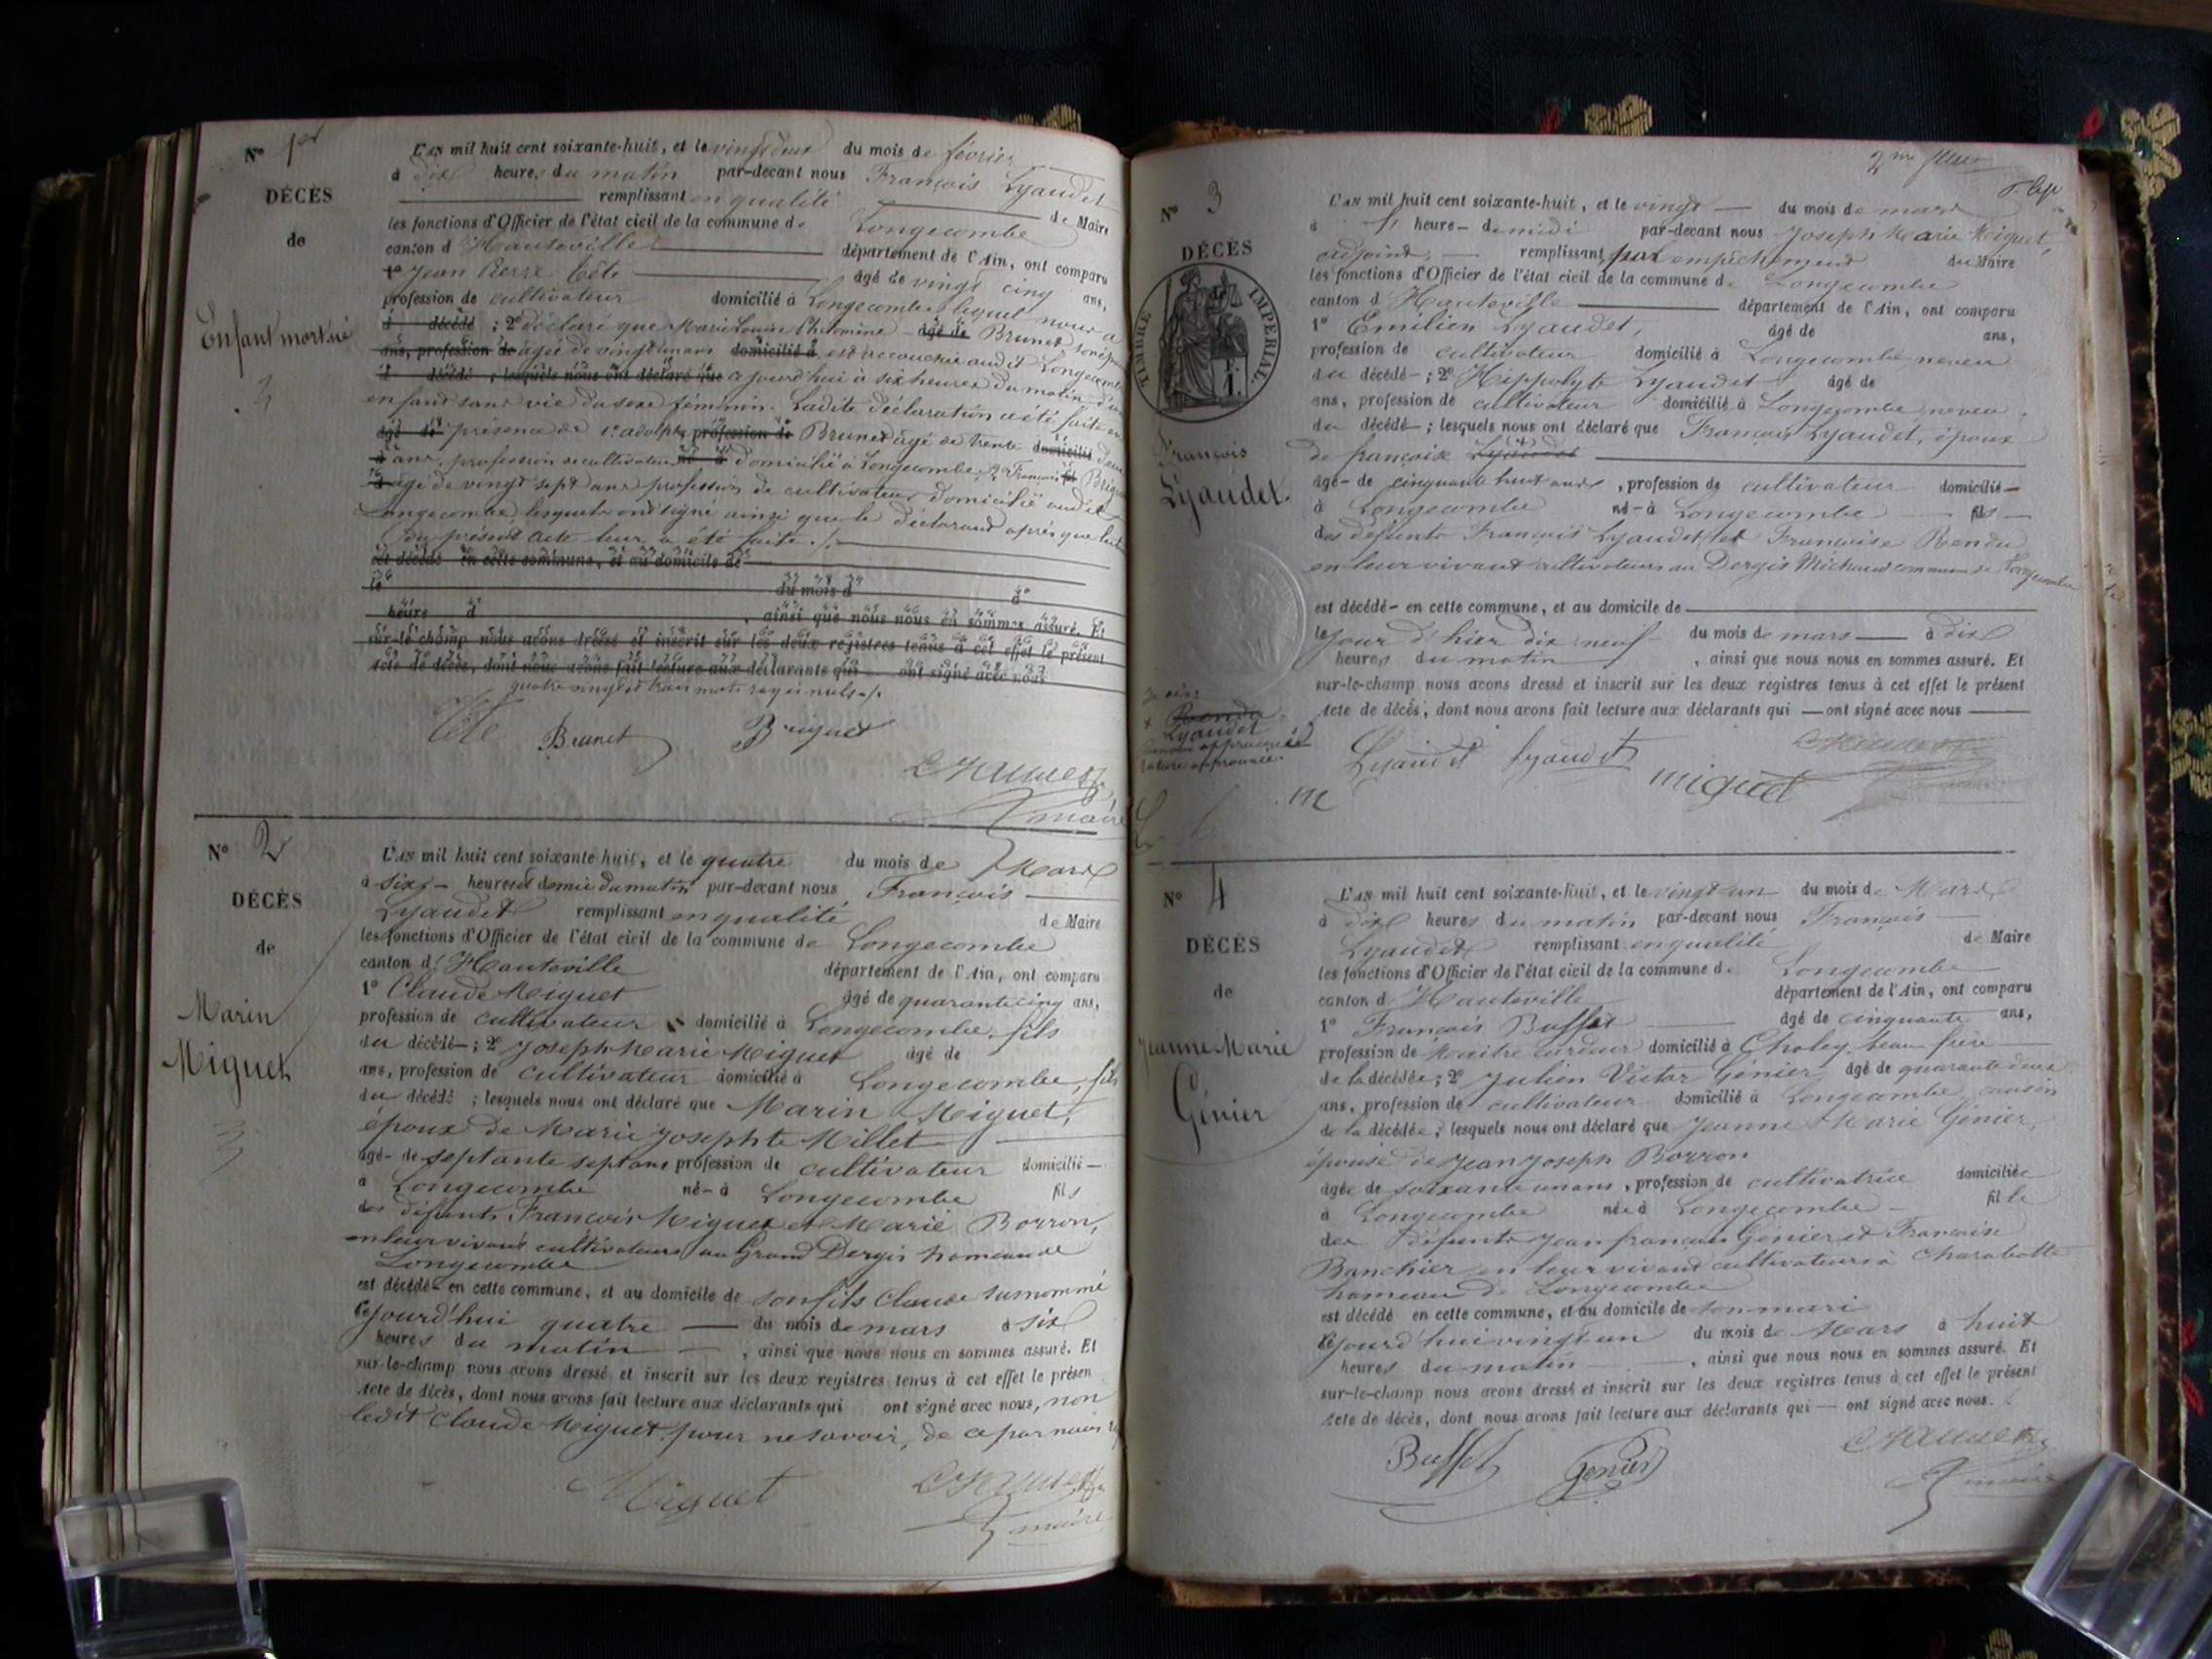 N° 1er
DÉCÈS
de
Enfant mort né
L'AN mil huit cent soixante-huit, et le vingt deux du mois de février
à dix heures du matin par-devant nous François Lyaudet
remplissant en qualité de Maire
les fonctions d'Officier de l'état civil de la commune de Longecombe
canton d'Hauteville département de l'Ain, ont comparu
1° Jean Pierre Tête âgé de vingt cinq ans,
profession de cultivateur domicilié à Longecombe, lequel nous a
d décédé ; 2° déclaré que Marie Louise Philomène âgé de Brunet son épouse
ans, profession de âgée de vingt un ans domicilié à est accouchée audit Longecombe
d décédé ; lesquels nous ont déclaré que ajourd'hui à six heures du matin d'un
enfant sans vie du sexe féminin. Ladite déclaration a été faite en
âgé de présence de 1° adolphe profession de Brunet âgé de trente domicilié deux
à ans, profession de cultivateur né à domicilié à Longecombe, 2° François fil Briguet
âgé de vingt sept ans profession de cultivateur domicilié audit
Longecombe lesquels ont signé ainsi que le déclarant après que lecture
du présent acte leur a été faite ./.
est décédé en cette commune, et au domicile de
le du mois d à
heure d , ainsi que nous nous en sommes assuré. Et
sur-le-champ nous avons dressé et inscrit sur les deux registres tenus à cet effet le présent
acte de décès, dont nous avons fait lecture aux déclarants qui ont signé avec nous
quatre vingt et trois mots rayés nuls ./.
Tête Brunet Briguet
maire
N° 2
DÉCÈS
de
Marin
Miguet
L'AN mil huit cent soixante-huit, et le quatre du mois de Mars
à six heures et demie du matin par-devant nous François
Lyaudet remplissant en qualité de Maire
les fonctions d'Officier de l'état civil de la commune de Longecombe
canton d'Hauteville département de l'Ain, ont comparu
1° Claude Miguet âgé de quarante cinq ans,
profession de cultivateur domicilié à Longecombe, fils
du décédé ; 2° Joseph Marie Miguet âgé de
ans, profession de cultivateur domicilié à Longecombe, fils
du décédé ; lesquels nous ont déclaré que Marin Miguet,
époux de Marie Josephte Millet
âgé de septante sept ans profession de cultivateur domicilié
à Longecombe né à Longecombe fils
des défunts François Miguet et Marie Borron,
en leur vivant cultivateurs au Grand Dergis hameau de
Longecombe
est décédé en cette commune, et au domicile de son fils Claude susnommé
cejourd'hui quatre du mois de mars à six
heures du matin , ainsi que nous nous en sommes assuré. Et
sur-le-champ nous avons dressé et inscrit sur les deux registres tenus à cet effet le présen
Acte de décès, dont nous avons fait lecture aux déclarants qui ont signé avec nous, non
ledit Claude Miguet pour ne savoir, de ce par nous
Miguet
maire
2me
N° 3
DÉCÈS
TIMBRE IMPÉRIAL
François
Lyaudet.
L'AN mil huit cent soixante-huit, et le vingt du mois de mars
à heure de midi par-devant nous Joseph Marie Miguet,
adjoint, remplissant par empêchement du Maire
les fonctions d'Officier de l'état civil de la commune de Longecombe
canton d'Hauteville département de l'Ain, ont comparu
1° Emilien Lyaudet, âgé de ans,
profession de cultivateur domicilié à Longecombe neveu
du décédé ; 2° Hippolyte Lyaudet âgé de
ans, profession de cultivateur domicilié à Longecombe neveu
du décédé ; lesquels nous ont déclaré que François Lyaudet, époux
de françoise Lyaudet
âgé de cinquante huit ans, profession de cultivateur domicilié
à Longecombe né à Longecombe fils
des défunts François Lyaudet et Françoise Rendu
en leur vivant cultivateurs au Dergis Michaud commune de Longecombe
est décédé en cette commune, et au domicile de
le jour d'hier dix neuf du mois de mars à dix
heures du matin , ainsi que nous nous en sommes assuré. Et
sur-le-champ nous avons dressé et inscrit sur les deux registres tenus à cet effet le présent
Acte de décès, dont nous avons fait lecture aux déclarants qui ont signé avec nous
Lyaudet
approuvée
Lyaudet Lyaudet Miguet
N° 4
DÉCÈS
de
Jeanne Marie
Génier
L'AN mil huit cent soixante-huit, et le vingt un du mois de Mars
à dix heures du matin par-devant nous François
Lyaudet remplissant en qualité de Maire
les fonctions d'Officier de l'état civil de la commune de Longecombe
canton d'Hauteville département de l'Ain, ont comparu
1° François Buffet âgé de cinquante ans,
profession de Maître cardeur domicilié à Choley, beau frère
de la décédée ; 2° Julien Victor Génier âgé de quarante deux
ans, profession de cultivateur domicilié à Longecombe cousin
de la décédée ; lesquels nous ont déclaré que Jeanne Marie Génier,
épouse de Jean Joseph Borron
âgée de soixante un ans, profession de cultivatrice domiciliée
à Longecombe née à Longecombe fille
des défunts Jean françois Génier et Françoise
Banchier en leur vivant cultivateurs à Charabotte
hameau de Longecombe
est décédé en cette commune, et au domicile de son mari
cejourd'hui vingt un du mois de Mars à huit
heures du matin , ainsi que nous nous en sommes assuré. Et
sur-le-champ nous avons dressé et inscrit sur les deux registres tenus à cet effet le présent
Acte de décès, dont nous avons fait lecture aux déclarants qui ont signé avec nous.
Buffet Genier
maire